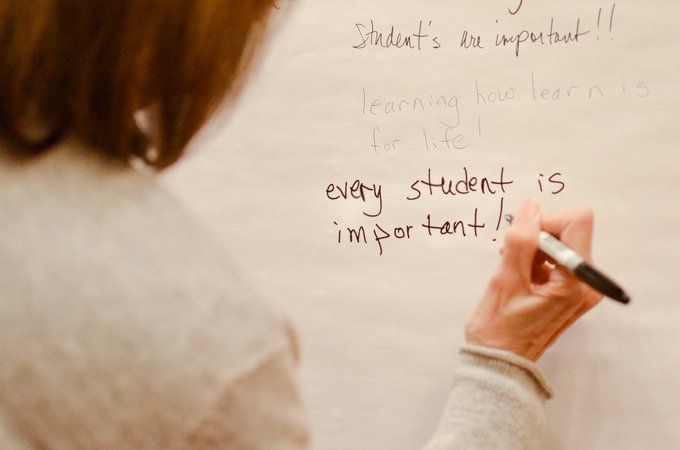 Student's are important!!
learning how learn is
for life!
every student is
important!